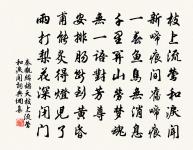 枝上流鶯和淚聞
新啼痕間舊啼痕
一春魚鳥無消息
千里關山勞夢魂
無一語對芳尊
安排腸斷到黃昏
甫能炙得燈兒了
雨打梨花深閉門
秦觀鷓鴣天枝上流鶯
和淚聞詞